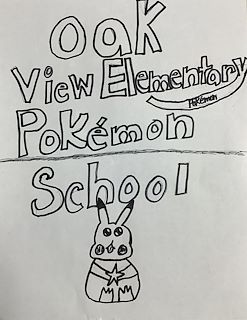 Oak
View Elementary
Pokémon
Pokémon
School